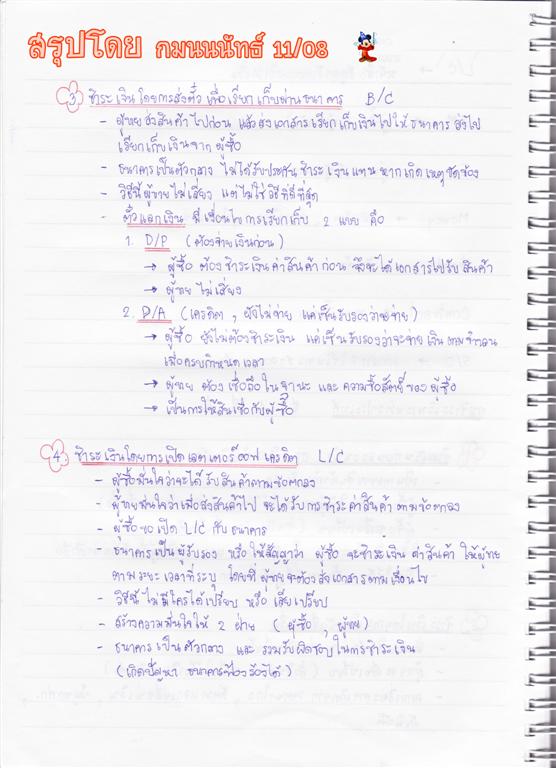 สรุปโดย กมนนนัทธ์ 11/08
3. ชำระเงินโดยการส่งตั๋วเพื่อเรียกเก็บผ่านธนาคาร B/C
- ผู้ขายส่งสินค้าไปก่อน แล้วส่งเอกสารเรียกเก็บเงินไปให้ธนาคาร ส่งไป
เรียกเก็บเงินจากผู้ซื้อ
- ธนาคารเป็นตัวกลาง ไม่ได้รับประกันชำระเงินแทน หากเกิดเหตุขัดข้อง
- วิธีนี้ผู้ขายไม่เสี่ยว แต่ไม่ใช่วิธีที่ดีที่สุด
- ตั๋วแลกเงิน มีเงื่อนไขการเรียกเก็บ 2 แบบ คือ
1. D/P (ต้องจ่ายเงินก่อน)
→ ผู้ซื้อ ต้องชำระเงินค่าสินค้าก่อน จึงจะได้เอกสารไปรับสินค้า
→ ผู้ขาย ไม่เสี่ยง
2. D/A (เครดิต, ยังไม่จ่าย แค่เซ็นรับรองว่าจะจ่าย)
→ ผู้ซื้อ ยังไม่ต้องชำระเงิน แค่เซ็นรับรองว่าจะจ่ายเงินตามจำนวน
เมื่อครบกำหนดเวลา
→ ผู้ขาย ต้องเชื่อถือในฐานะ และความซื่อสัตย์ของผู้ซื้อ
→ เป็นการให้สินเชื่อกับผู้ซื้อ
4. ชำระเงินโดยการเปิดเลตเตอร์ออฟเครดิต L/C
- ผู้ซื้อมั่นใจว่าจะได้รับสินค้าตามข้อตกลง
- ผู้ขายมั่นใจว่าเมื่อส่งสินค้าไป จะได้รับการชำระค่าสินค้าตามข้อตกลง
- ผู้ซื้อขอเปิด L/C กับธนาคาร
- ธนาคารเป็นผู้รับรอง หรือให้สัญญาว่า ผู้ซื้อ จะชำระเงินค่าสินค้า ให้ผู้ขาย
ตามระยะเวลาที่ระบุ โดยที่ผู้ขายจะต้องส่งเอกสารตามเงื่อนไข
- วิธีนี้ไม่มีใครได้เปรียบ หรือเสียเปรียบ
- สร้างความมั่นใจให้ 2 ฝ่าย (ผู้ซื้อ, ผู้ขาย)
- ธนาคารเป็นตัวกลาง และร่วมรับผิดชอบในการชำระเงิน
(เกิดปัญหา ธนาคารฟ้องร้องได้)